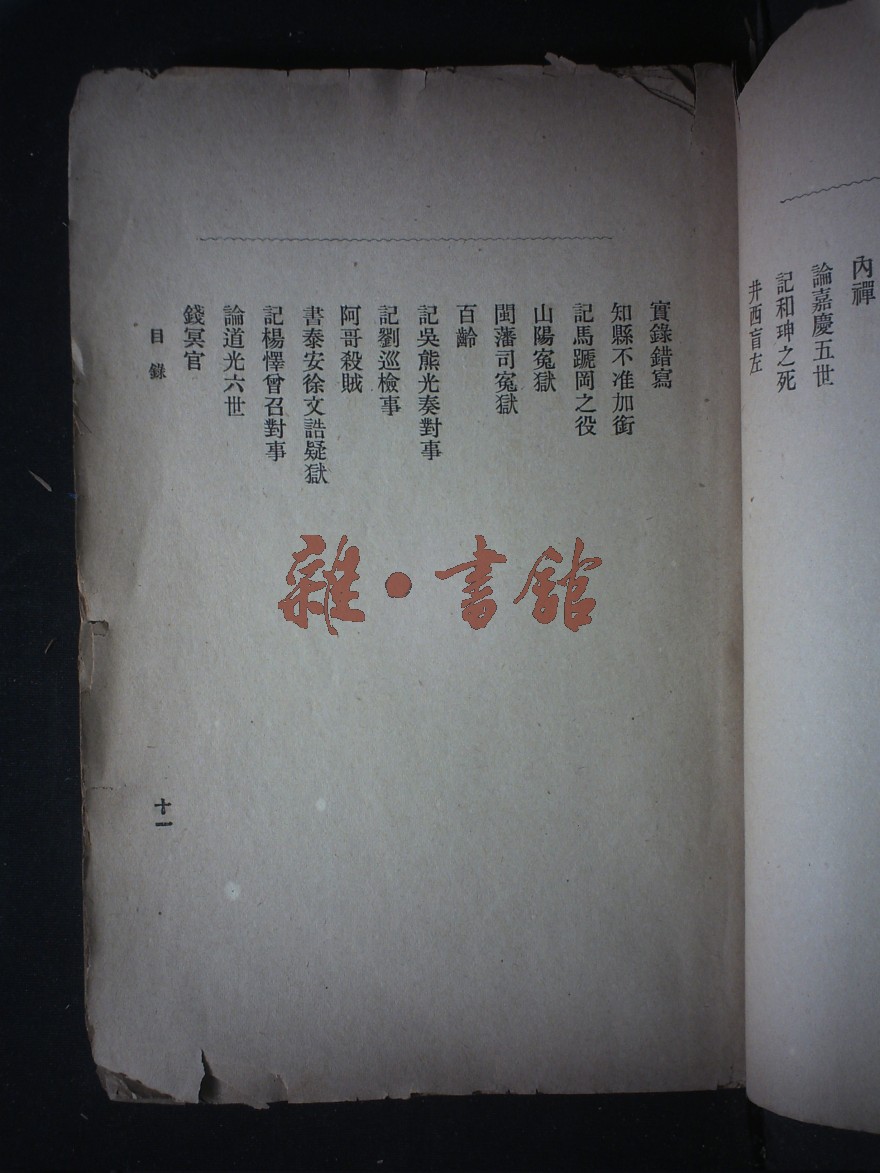 內禪
論嘉慶五世
記和珅之死
井西盲左
實錄錯寫
知縣不准加銜
記馬蹏岡之役
山陽寃獄
閩藩司寃獄
百齡
記吳熊光奏對事
記劉巡檢事
阿哥殺賊
書泰安徐文誥疑獄
記楊懌曾召對事
論道光六世
錢冥官
目錄
十一
雜·書館